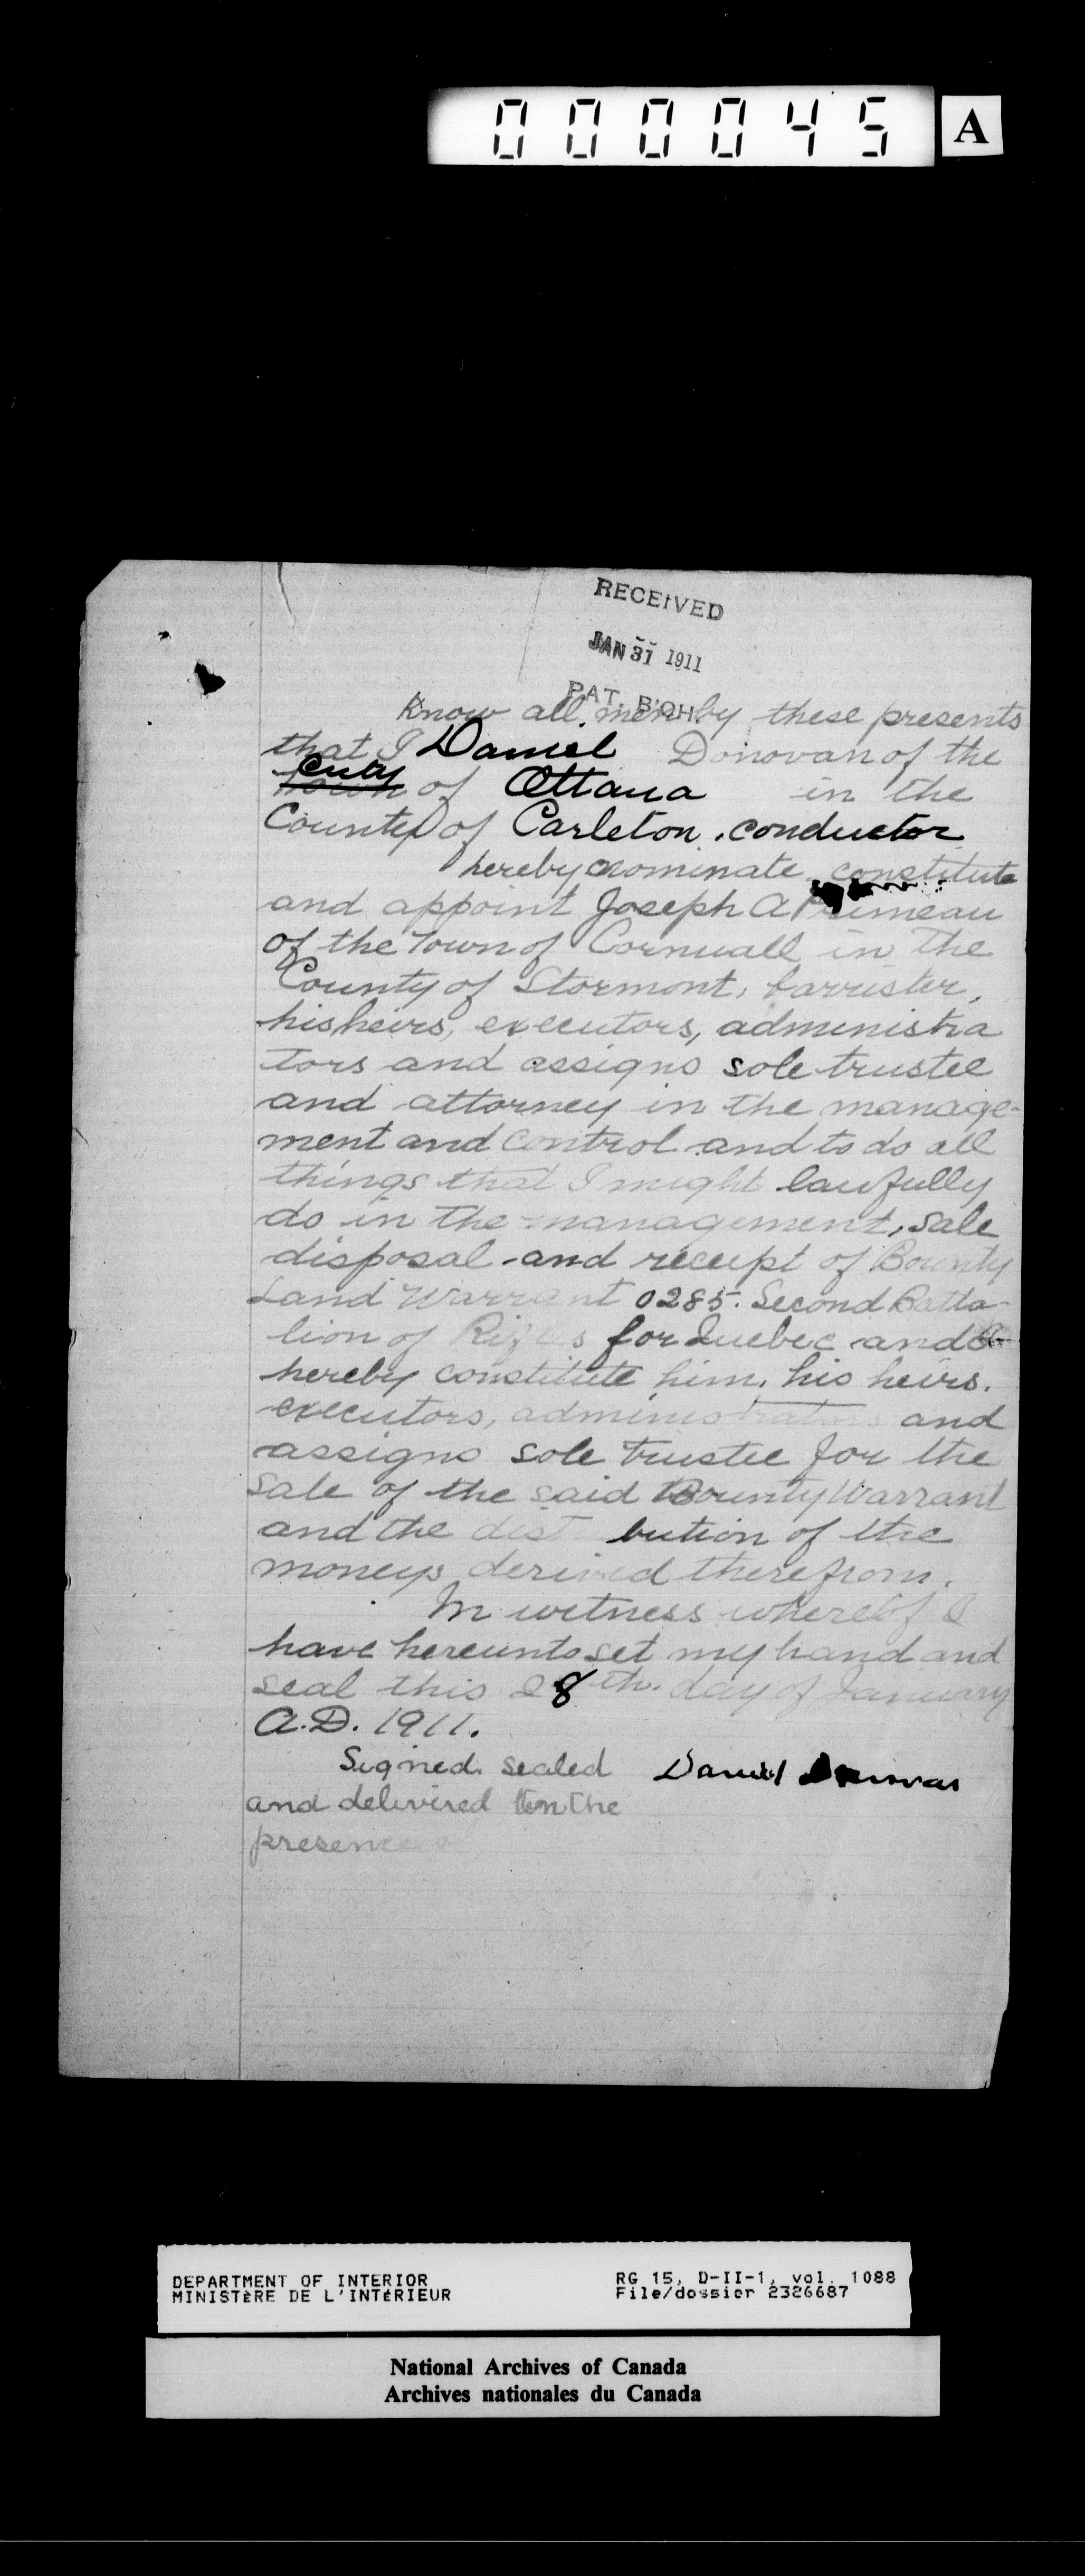 000045 A
RECEIVED
JAN 31 1911
PAT. B'CH.
Know all men by these presents
that I Daniel Donovan of the
City
Town of Ottawa in the
County of Carleton, conductor
hereby nominate, constitute
and appoint Joseph A Primeau
of the Town of Cornwall in the
County of Stormont, barrister,
his heirs, executors, administra
tors and assigns sole trustee
and attorney in the manage-
ment and control and to do all
things that I might lawfully
do in the management, sale
disposal and receipt of Bounty
Land Warrant 0285. Second Batta-
lion of Rifles for Quebec and
hereby constitute him, his heirs.
executors, administrators and
assigns sole trustee for the
Sale of the said Bounty Warrant
and the dist bution of the
moneys derived therefrom.
In witness whereof I
have hereunto set my hand and
seal this 28th. day of January
A.D. 1911.
Signed, sealed Daniel Donovan
and delivered in the
presence
DEPARTMENT OF INTERIOR RG 15, D-II-1, vol. 1088
MINISTÈRE DE L'INTÉRIEUR File/dossier 2326687
National Archives of Canada
Archives nationales du Canada